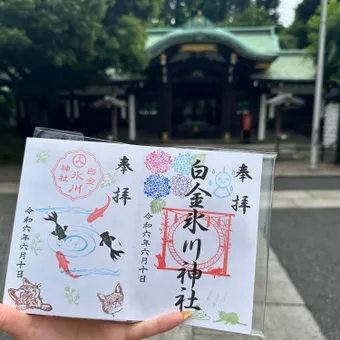 奉拝
白金氷川神社
令和六年六月十日
奉拝
白金
氷川
神社
令和六年六月十日